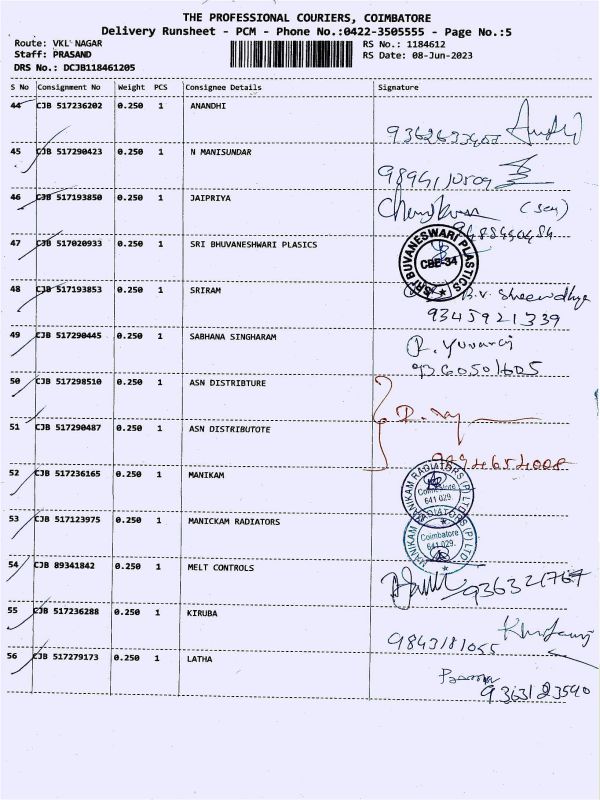 THE PROFESSIONAL COURIERS, COIMBATORE
Delivery Runsheet - PCM - Phone No.:0422-3505555 - Page No.:5
Route: VKL NAGAR RS No.: 1184612
Staff: PRASAND RS Date: 08-Jun-2023
DRS No.: DCJB118461205
S No Consignment No Weight PCS Consignee Details Signature
44 CJB 517236202 0.250 1 ANANDHI
45 CJB 517290423 0.250 1 N MANISUNDAR
46 CJB 517193850 0.250 1 JAIPRIYA
47 CJB 517020933 0.250 1 SRI BHUVANESHWARI PLASICS
SRI BUVANESWARI PLASTICS
CBE-34
48 CJB 517193853 0.250 1 SRIRAM
9345921339
49 CJB 517290445 0.250 1 SABHANA SINGHARAM
R. Yuvaraj
50 CJB 517298510 0.250 1 ASN DISTRIBTURE
51 CJB 517290487 0.250 1 ASN DISTRIBUTOTE
9894654008
52 CJB 517236165 0.250 1 MANIKAM
MANIKAM RADIATORS (P) LTD
641 029.
53 CJB 517123975 0.250 1 MANICKAM RADIATORS
MANIKAM RADIATORS (P) LTD
Coimbatore
641 029.
54 CJB 89341842 0.250 1 MELT CONTROLS
55 CJB 517236288 0.250 1 KIRUBA
9843181055
56 CJB 517279173 0.250 1 LATHA
9363123590